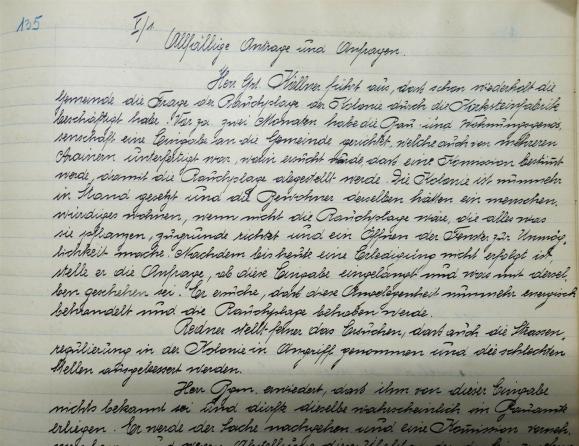 135
I/1
Allfällige Anträge und Anfragen.
Herr Gd. Kellner führt aus, dass schon wiederholt die
Gemeinde die Frage der Rauchplage der Kolonie durch die
beschäftigt habe. Vor ga. zwei Monaten habe die Bau- und Wohnungsgenos,
senschaft eine Eingabe an die Gemeinde gerichtet, welche auch von mehreren
unterfertigt war, worin ersucht wurde, dass eine Kommission bestimmt
werde, damit die Rauchplage abgestellt werde. Die Kolonie ist nunmehr
in Stand gesetzt und die Bewohner derselben hätten ein menschen,
würdiges wohnen, wenn nicht die Rauchplage wäre, die alles was
sie pflanzen, zugrunde richtet und ein Öffnen der Fenster zur Unmög,
lichkeit mache. Nachdem bis heute eine Erledigung nicht erfolgt ist,
stelle er die Anfrage, ob diese Eingabe eingelangt und was mit dersel,
ben geschehen sei. Er ersuche, dass diese Angelegenheit nunmehr energisch
behandelt und die Rauchplage behoben werde.
Redner stellt ferner das Ersuchen, dass auch die Strassen,
regulierung in der Kolonie in Angriff genommen und die schlechten
Stellen ausgebessert werden.
Herr Bgm. erwidert, dass ihm von dieser Eingabe
nichts bekannt sei und dürfte dieselbe wahrscheinlich im Bauamte
erliegen. Er werde der Sache nachgehen und eine Kommission